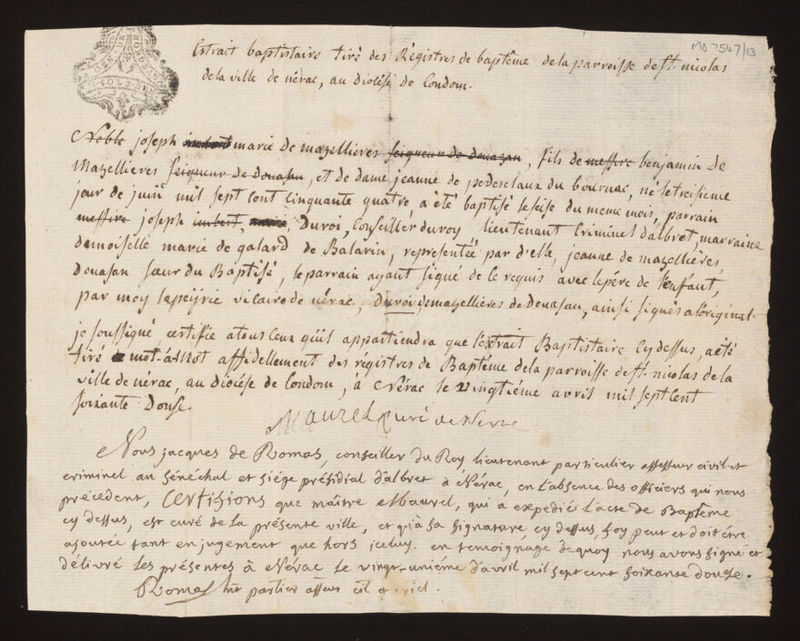 MS 7547/13
Extrait baptistaire tiré des Régistres de baptême de la parroisse de st. nicolas
de la ville de nérac, au diocése de Condom.
Noble joseph imbert marie de mazellieres seigneur de douazan, fils de messire benjamin de
Mazellieres seigneur de douasan, et de dame jeanne de pedesclaux du bournac, né le treisieme
jour de juin mil sept cent cinquante quatre a été baptisé le seise du meme mois, parrain
messire joseph imbert, marie, Duroi, Conseiller du roy lieutenant Criminel d'albret, marraine
demoiselle marie de galard de Balarin, representée par d'elle, jeanne de mazellieres
Douasan sœur du Baptisé, le parrain ayant signé de ce requis avec le pére de l'enfant,
par moy lapeijrie vicaire de nérac, duroi, demazellieres de Douasan, ainsi signés a l'original.
je soussigné certifie a tous Ceux qu'il appartiendra que l'extrait Baptistaire Cy dessus, a été
tiré mot-à-Mot affidellement des régistres de Baptême de la parroisse de st. nicolas de la
ville de nérac, au diocése de Condom, à Nérac le vingtiéme avril mil sept cent
soixante Douse.
Maurel Curé de Nérac
Nous jacques de Romas, conseiller du Roy lieutenant particulier assesseur civil et
criminel au sénéchal et siége présidial d'albret à Nérac, en l'absence des officiers qui nous
précedent, Certifions que maître Maurel, qui a expedié l'acte de Baptême
cy dessus, est curé de la présente ville, et qu'a sa signature, cy dessus, foy peut et doit être
ajoutée tant en jugement que hors iceluy. en temoignage de quoy nous avons signé et
délivré les présentes à Nérac le vingt-unieme d'avril mil sept cent soixante douze.
Romas lnt partier assess cil et criel.